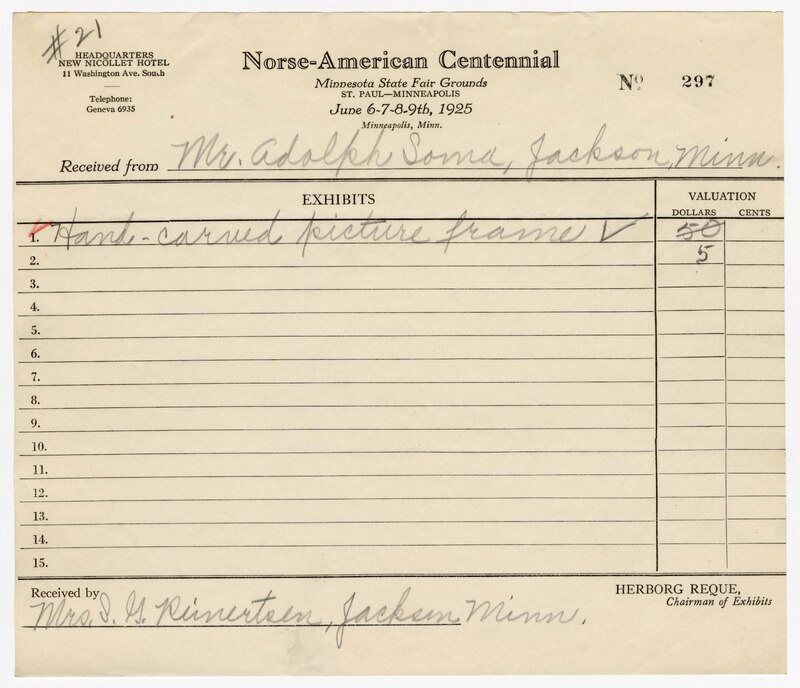 #21
HEADQUARTERS
NEW NICOLLET HOTEL
11 Washington Ave. South
Telephone:
Geneva 6935
Norse-American Centennial
Minnesota State Fair Grounds
ST. PAUL—MINNEAPOLIS
June 6-7-8-9th, 1925
Minneapolis, Minn.
Nº 297
Received from Mr. Adolph Soma, Jackson, Minn.
EXHIBITS
VALUATION
DOLLARS CENTS
1. Hand-carved picture frame ✓ 50
2. 5
3.
4.
5.
6.
7.
8.
9.
10.
11.
12.
13.
14.
15.
Received by
Mrs. I. G. Reinertsen, Jackson Minn.
HERBORG REQUE,
Chairman of Exhibits